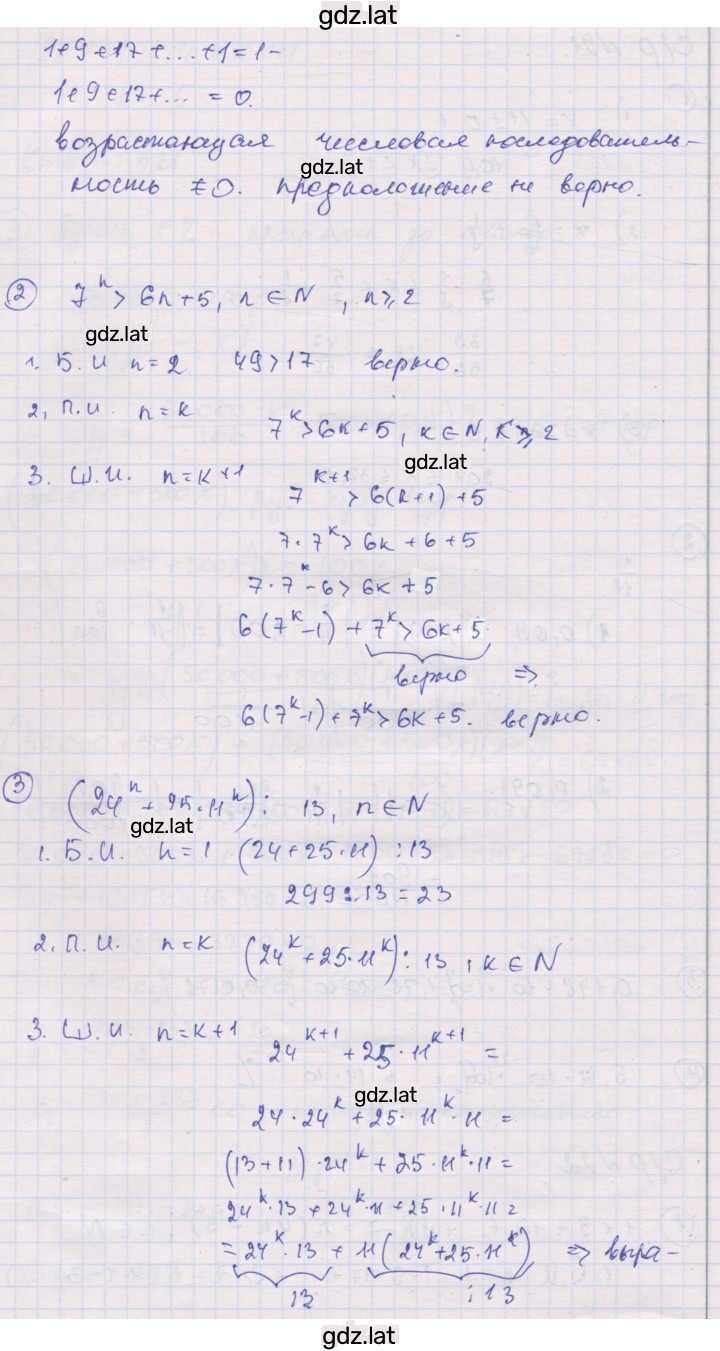 gdz.lat
1+9+17+...+1=1-
1+9+17+... = 0.
возрастающая числовая последователь-
gdz.lat
ность ≠0. предположение не верно.
② 7ⁿ > 6n+5, n ∈ N , n ≥ 2
gdz.lat
1. Б.И n=2 49>17 верно.
2. П.И. n=k
7ᵏ>6k+5, k ∈ N, k ≥ 2
gdz.lat
3. Ш.И. n=k+1
7ᵏ⁺¹ > 6(k+1)+5
7·7ᵏ> 6k+6+5
7·7ᵏ-6> 6k+5
6(7ᵏ-1) + 7ᵏ>6k+5
верно ⇒
6(7ᵏ-1)+7ᵏ>6k+5. верно.
③ (24ⁿ+25·11ⁿ)⋮ 13, n ∈ N
gdz.lat
1. Б.И. n=1 (24+25·11) ⋮13
299:13=23
2. П.И. n=k (24ᵏ+25·11ᵏ)⋮ 13 , k ∈ N
3. Ш.И. n=k+1
24ᵏ⁺¹+25·11ᵏ⁺¹ =
gdz.lat
24·24ᵏ+25·11ᵏ·11=
(13+11)·24ᵏ+25·11ᵏ·11=
24ᵏ·13+24ᵏ·11+25·11ᵏ·11=
=24ᵏ·13 + 11(24ᵏ+25·11ᵏ) ⇒ выра-
⋮13 ⋮13
gdz.lat